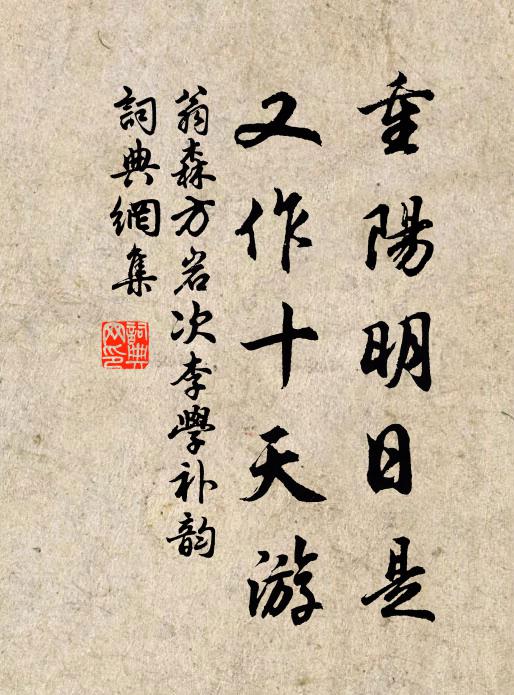 重陽明日是
又作十天游
翁森方岩次李學补韵
詞典網集
詞典网印